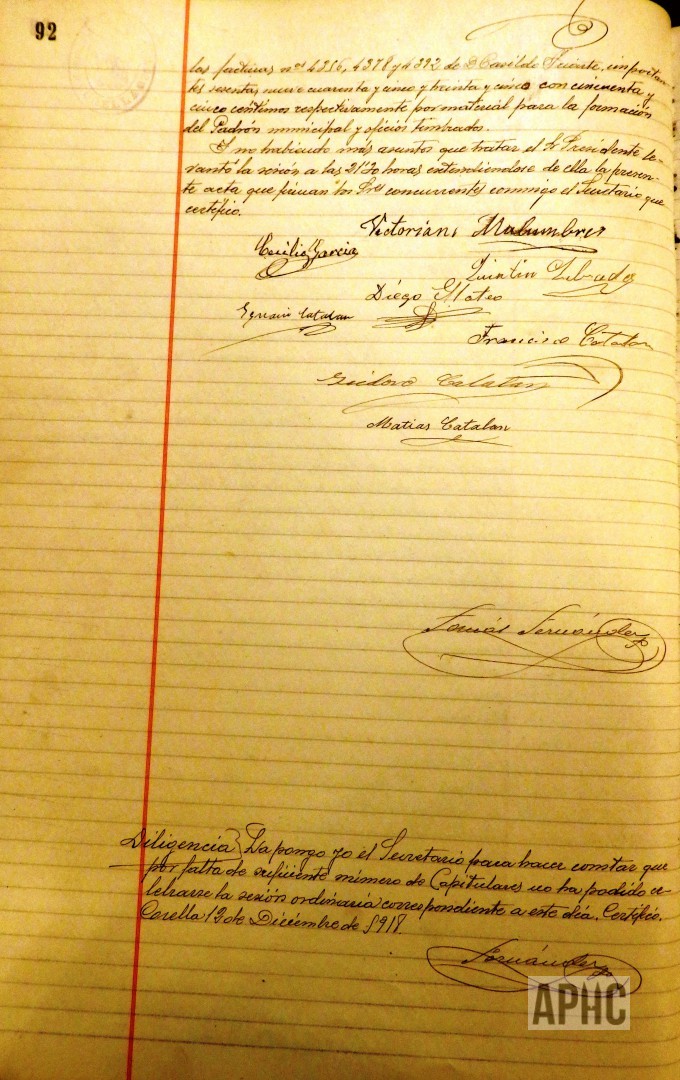 92
las facturas nos 4356, 4378 y 4392 de D. Casildo Iriarte, importan-
tes sesenta, nueve cuarenta y cinco y treinta y cinco con cincuenta y
cinco centimos respectivamente por material para la formación
del Padrón municipal y oficios timbrados.
Y no habiendo más asuntos que tratar el Sr Presidente le-
vantó la sesión a las 21'30 horas entendiendose de ella la presen-
te acta que firman los Sres concurrentes conmigo el Secretario que
certifico.
Victoriano Malumbres
Cecilio Garcia
Quintin
Diego Mateo
Ignacio Catalan
Francisco Catalan
Isidoro Catalan
Matias Catalan
Tomás Fernández
Diligencia) La pongo yo el Secretario para hacer constar que
por falta de suficiente número de Capitulares no ha podido ce-
lebrarse la sesión ordinaria correspondiente a este dia. Certifico.
Corella 12 de Diciembre de 1917
Fernández
APHC